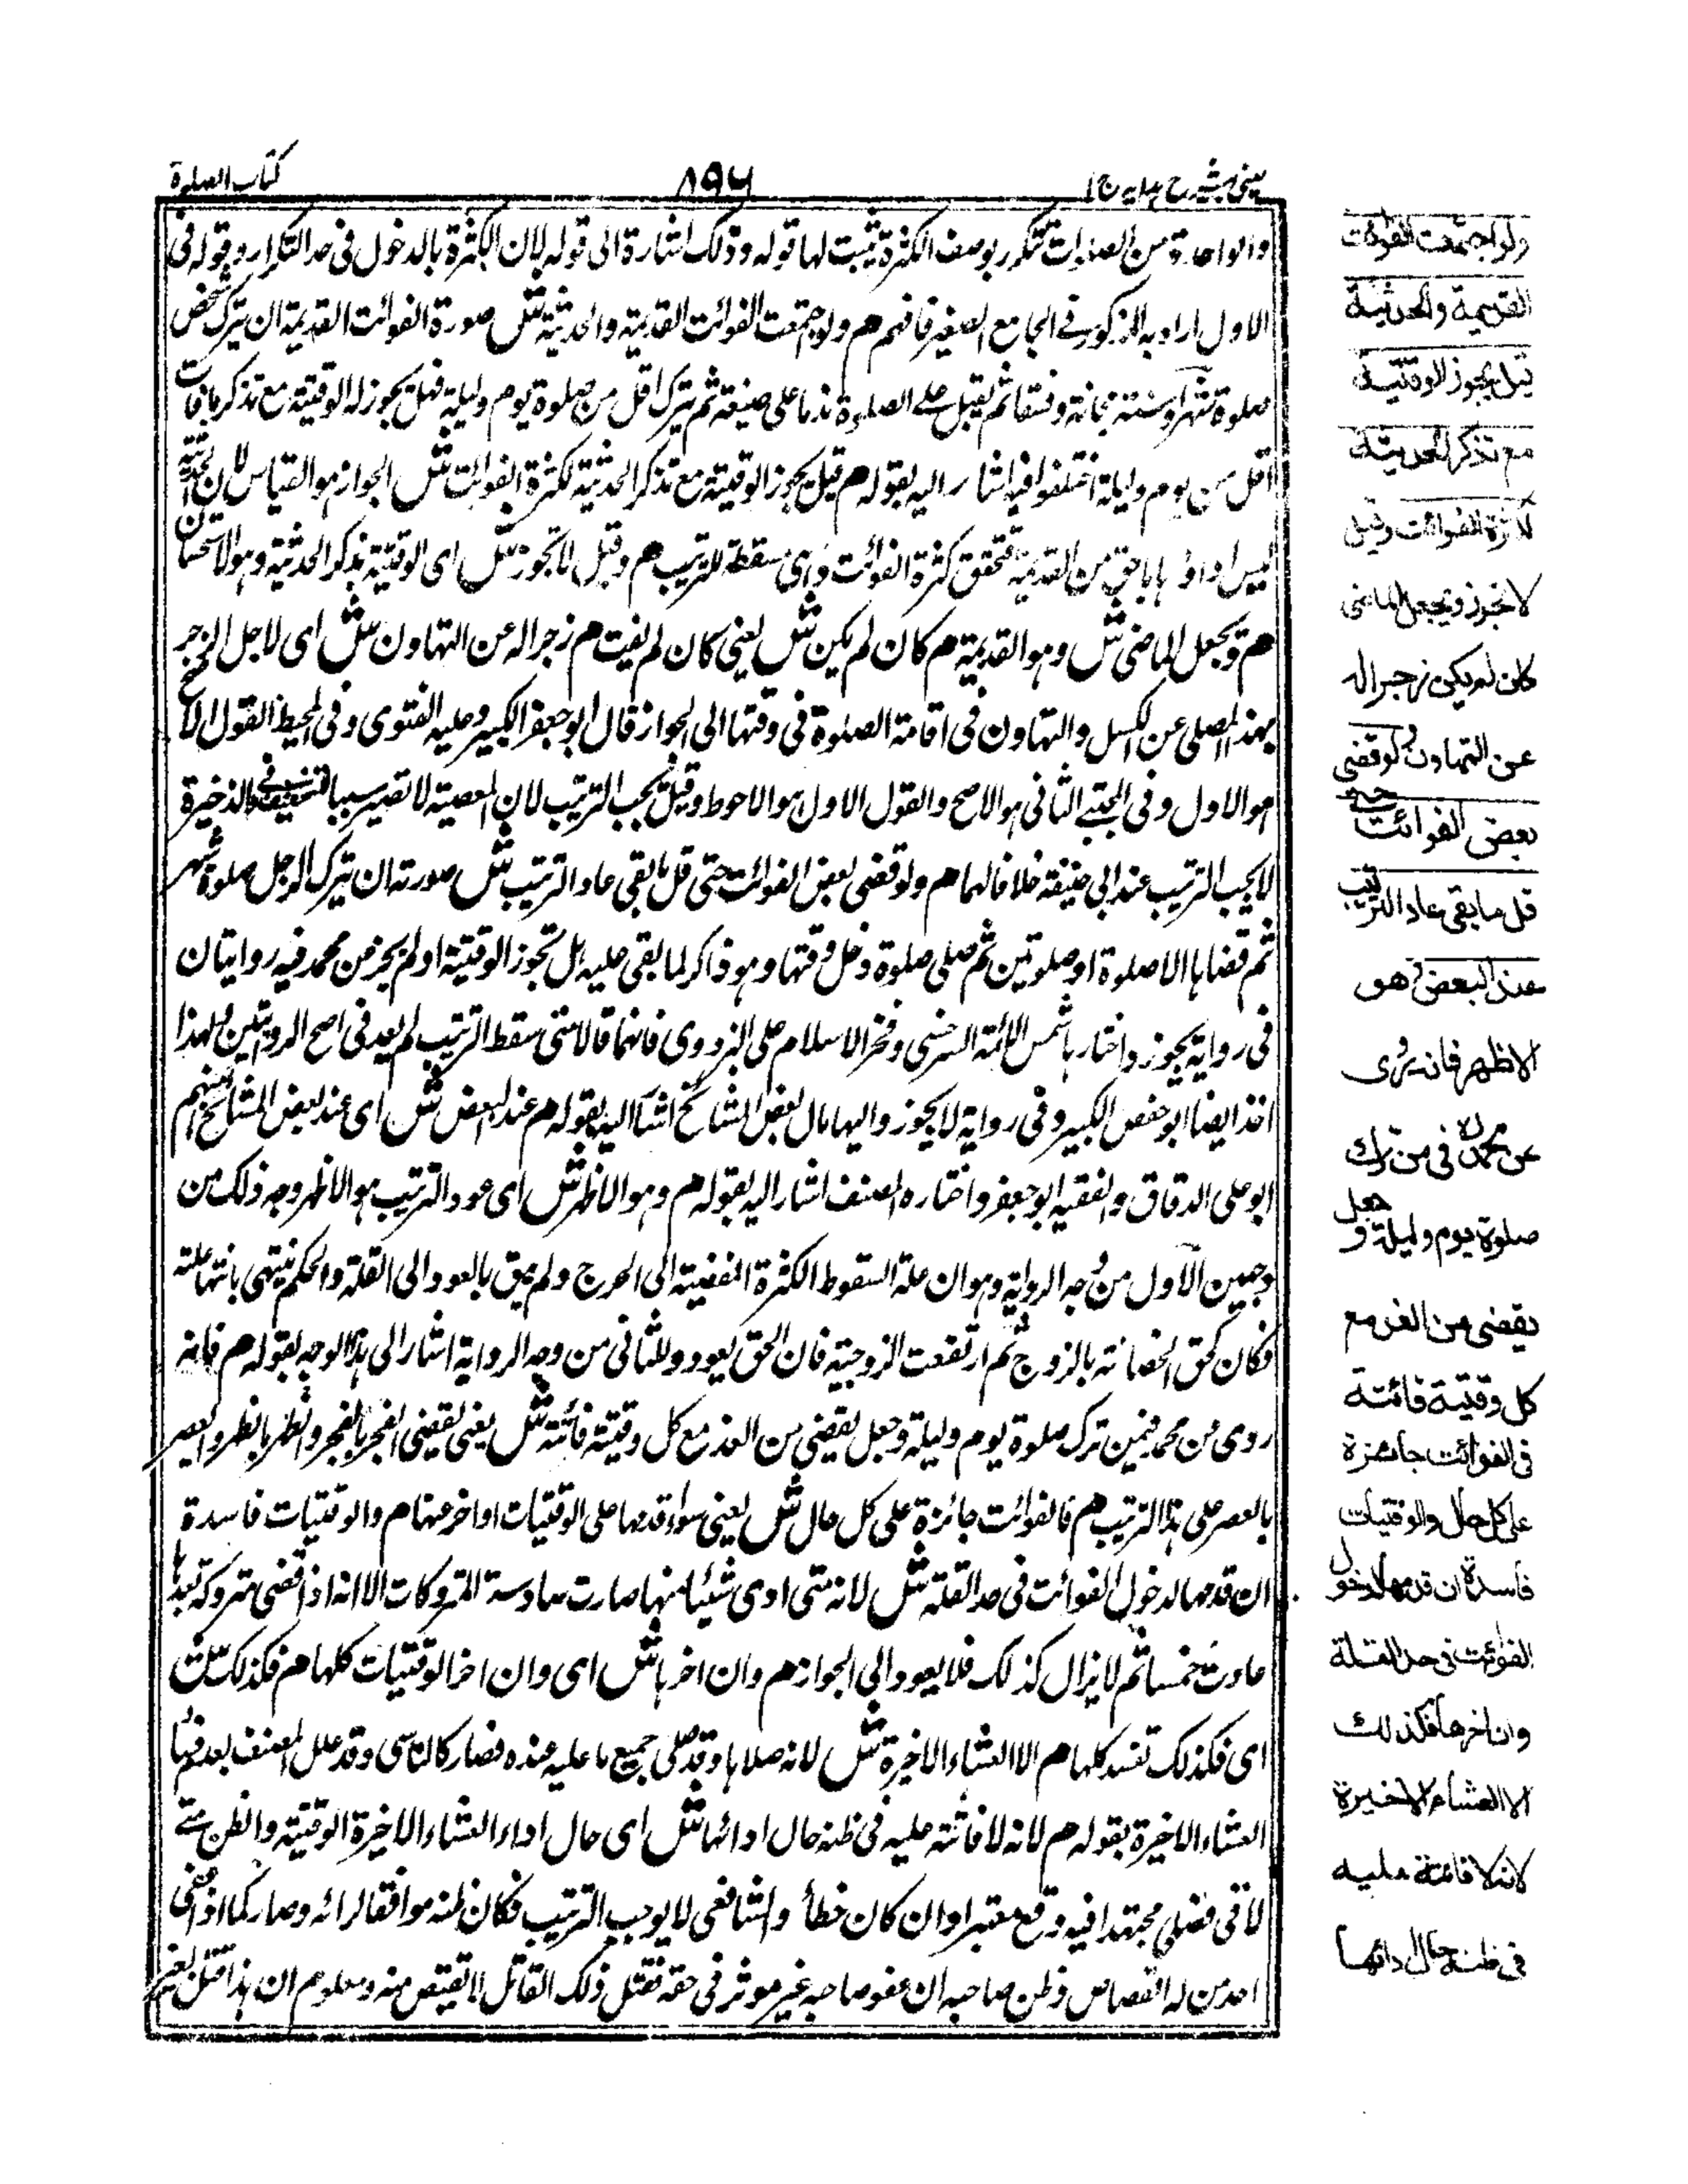 عینی شرح ہدایہ ج ۱
۸۹۶
کتاب الصلوة
والواحدة من الصلوات تتكرر بوصف الكثرة تثبت لها قوله وذلك اشارة الى قوله لان الكثرة بالدخول فى حد التكرار وقوله فى
الاول اراد به المذكور فى الجامع الصغير فافهم هم ولو اجتمعت الفوائت القديمة والحديثة ش صورة الفوائت القديمة ان يترك شخص
صلوة شهر او سنة مجانة وفسقا ثم يقبل على الصلوة ندما على صنيعه ثم يترك اقل من صلوة يوم وليلة فهل يجوز له الوقتية مع تذكر ما فات
اقل من يوم وليلة اختلفوا فيه اشار اليه بقوله هم قيل يجوز الوقتية مع تذكر الحديثة لكثرة الفوائت ش الجواز هو القياس لان الحديثة
ليس اداؤها باحق من القديمة فتحقق كثرة الفوائت وهى مسقطة للترتيب هم وقيل لا تجوز ش اى الوقتية بتذكر الحديثة وهو الاستحسان
هم ويجعل الماضى ش وهو القديمة هم كان لم يكن ش يعنى كان لم يفت هم زجرا له عن التهاون ش اى لاجل الزجر
بهذا المصلى عن الكسل والتهاون فى اقامة الصلوة فى وقتها الى الجواز قال ابو جعفر الكبير وعليه الفتوى وفى المحيط القول الاصح
هو الاول وفى المجتبى الثانى هو الاصح والقول الاول هو الاحوط وقيل يجب الترتيب لان المعصية لا تصير سببا للتخفيف وفى الذخيرة
لا يجب الترتيب عند ابى حنيفة خلافا لهما هم ولو قضى بعض الفوائت حتى قل ما بقى عاد الترتيب ش صورته ان يترك الرجل صلوة شهر
ثم قضاها الا صلوة او صلوتين ثم صلى صلوة دخل وقتها وهو ذاكر لما بقى عليه هل تجوز الوقتية او لم يجز عن محمد فيه روايتان
فى رواية يجوز واختارها شمس الائمة السرخسى وفخر الاسلام على البزدوى فانهما قالا متى سقط الترتيب لم يعد فى اصح الروايتين وبهذا
اخذ ايضا ابو حفص الكبير وفى رواية لا يجوز واليها مال بعض المشائخ اشار اليه بقوله هم عند البعض ش اى عند بعض المشائخ منهم
ابو على الدقاق والفقيه ابو جعفر واختاره المصنف اشار اليه بقوله هم وهو الاظهر ش اى عود الترتيب هو الاظهر وجه ذلك من
وجهين الاول من وجه الرواية وهو ان علة السقوط الكثرة المفضية الى الحرج ولم يبق بالعود الى القلة والحكم ينتهى بانتهاء علته
فكان كحق الحضانة بالزوج ثم ارتفعت الزوجية فان الحق يعود والثانى من وجه الرواية اشار الى هذا الوجه بقوله هم فانه
روى عن محمد فيمن ترك صلوة يوم وليلة وجعل يقضى من الغد مع كل وقتية فائتة ش يعنى يقضى الفجر بالفجر والظهر بالظهر والعصر
بالعصر على هذا الترتيب هم فالفوائت جائزة على كل حال ش يعنى سواء قدمها على الوقتيات او اخر عنها هم والوقتيات فاسدة
ان قدمها لدخول الفوائت فى حد القلة ش لانه متى ادى شيئا منها صارت سادسة المتروكات الا انه اذا قضى متروكة بعدها
عادت خمسا ثم لا يزال كذلك فلا يعود الى الجواز هم وان اخرها ش اى وان اخر الوقتيات كلها هم فكذلك ش
اى فكذلك تفسد كلها هم الا العشاء الاخيرة ش لانه صلاها وقد صلى جميع ما عليه عنده فصار كالناسى وقد علل المصنف بعد فيها
العشاء الاخيرة بقوله هم لانه لا فائتة عليه فى ظنه حال ادائها ش اى حال اداء العشاء الاخيرة الوقتية والظن متى
لاقى فصلا مجتهدا فيه وقع معتبرا وان كان خطأ والشافعى لا يوجب الترتيب فكان ظنه موافقا لرائه وصار كما اذا عفى
احد من له القصاص وظن صاحبه ان عفو صاحبه غير موثر فى حقه فقتل ذلك القاتل لا يقتص منه ومعلوم ان هذا قتل بغير
ولو اجتمعت الفوائت
القديمة والحديثة
قيل يجوز الوقتية
مع تذكر الحديثة
لكثرة الفوائت وقيل
لا تجوز ويجعل الماضى
كان لم يكن زجرا له
عن التهاون ولو قضى
بعض الفوائت حتى
قل ما بقى عاد الترتيب
عند البعض وهو
الاظهر فانه روى
عن محمد ره فى من ترك
صلوة يوم وليلة وجعل
يقضى من الغد مع
كل وقتية فائتة
فالفوائت جائزة
على كل حال والوقتيات
فاسدة ان قدمها لدخول
الفوائت فى حد القلة
وان اخرها فكذلك
الا العشاء الاخيرة
لانه لا فائتة عليه
فى ظنه حال ادائها